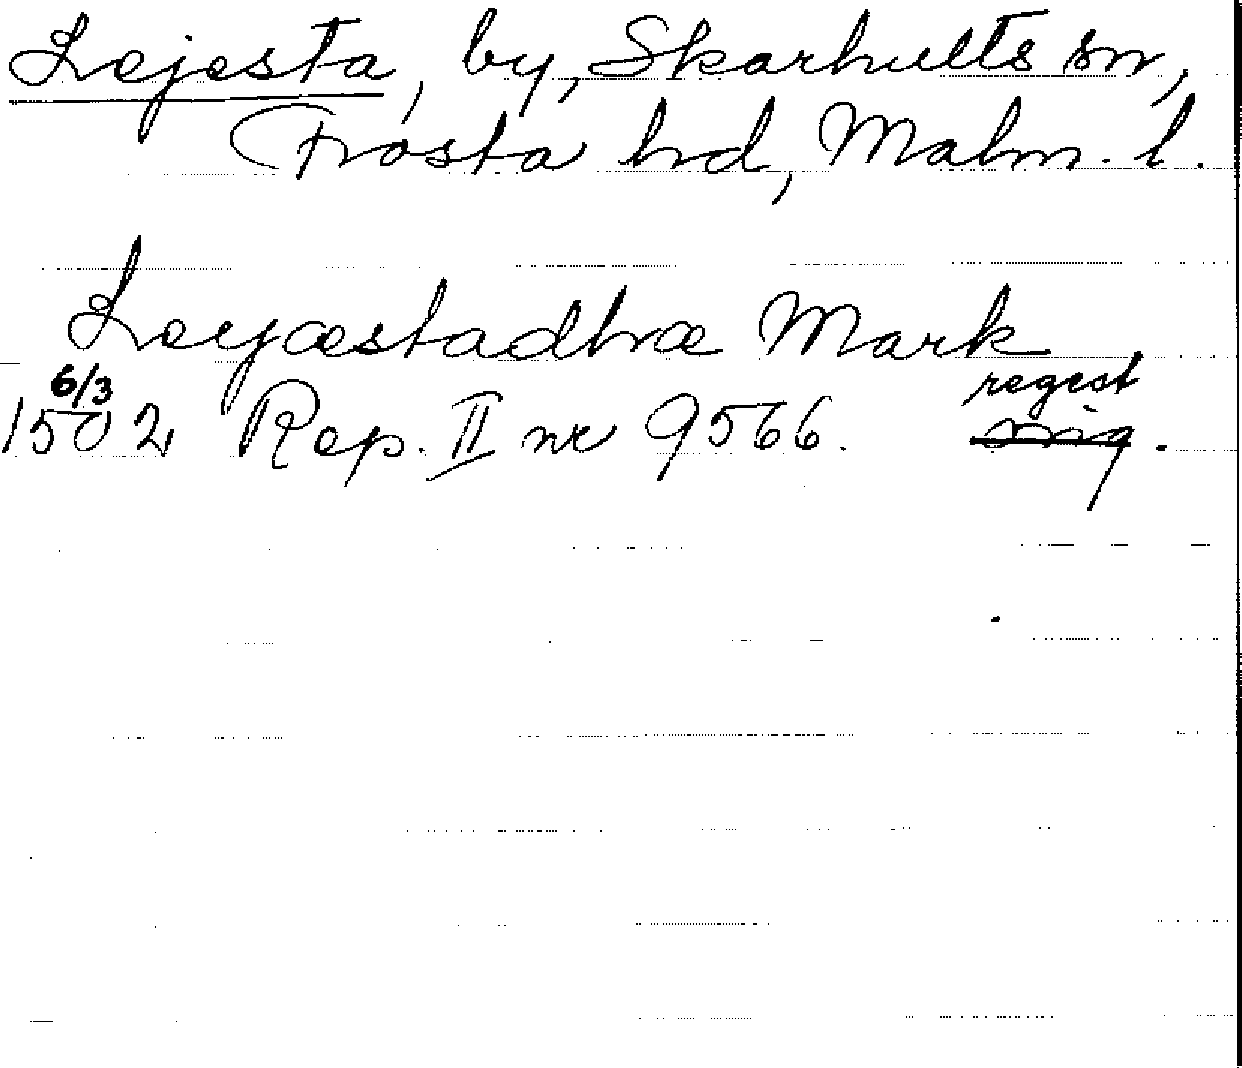 Lejesta, by, Skarhults sn,
Frosta hd, Malm. l.
Leyæstadhæ Mark
6/3 regest
1502 Rep. II nr 9566. orig.